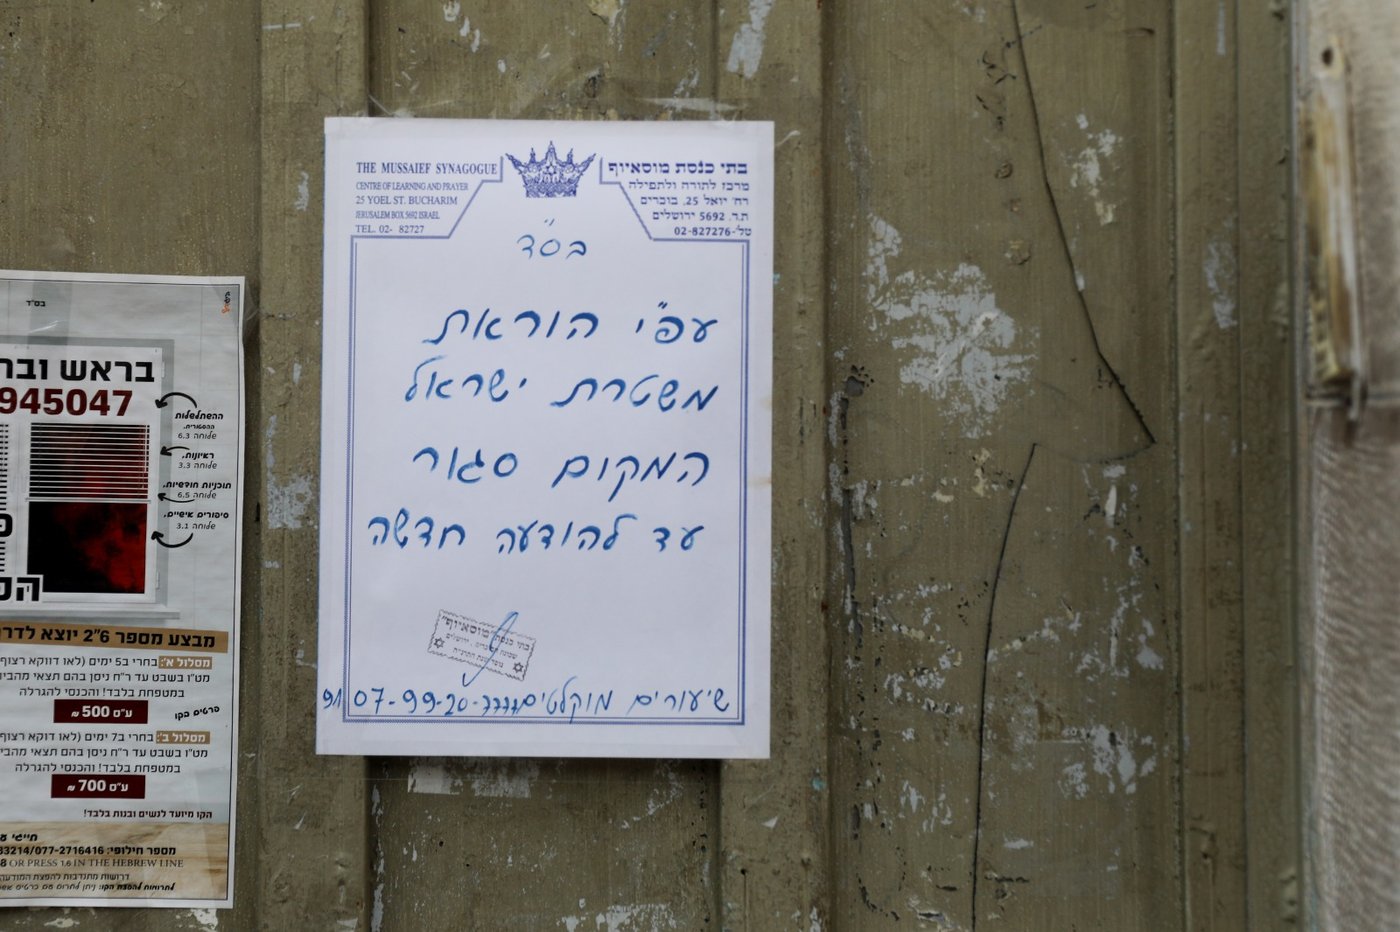 THE MUSSAIEF SYNAGOGUE
CENTRE OF LEARNING AND PRAYER
25 YOEL ST. BUCHARIM
JERUSALEM BOX 5692 ISRAEL
TEL. 02- 82727
בתי כנסת מוסאיוף
מרכז לתורה ולתפילה
רח' יואל 25, בוכרים
ת.ד. 5692 ירושלים
טל'-02-827276
בס"ד
עפ"י הוראת
משטרת ישראל
המקום סגור
עד להודעה חדשה
בתי כנסת "מוסאיוף"
שיעורים מוקלטים
בס"ד
בראש ובר
945047
ההשתלשלות
ההסטורית,
שלוחה 6.3
ראיונות,
שלוחה 3.3
תוכניות חודשיות,
שלוחה 6.5
סיפורים אישיים,
שלוחה 3.1
מבצע מספר 6"2 יוצא לדר
מסלול א': בחרי ב5 ימים (לאו דווקא רצוף
מט"ו בשבט עד ר"ח ניסן בהם תצאי מהבי
במטפחת בלבד! והכנסי להגרלה
ע"ס 500 ₪
פרטים בקו
מסלול ב': בחרי ב7 ימים (לאו דווקא רצוף
מט"ו בשבט עד ר"ח ניסן בהם תצאי מהבי
במטפחת בלבד! והכנסי להגרלה
ע"ס 700 ₪
הקו מיועד לנשים ובנות בלבד!
חייגי
מספר חילופי: 33214/077-2716416
8 OR PRESS 1.6 IN THE HEBREW LINE
דרושות מתנדבות להפצת המודעה